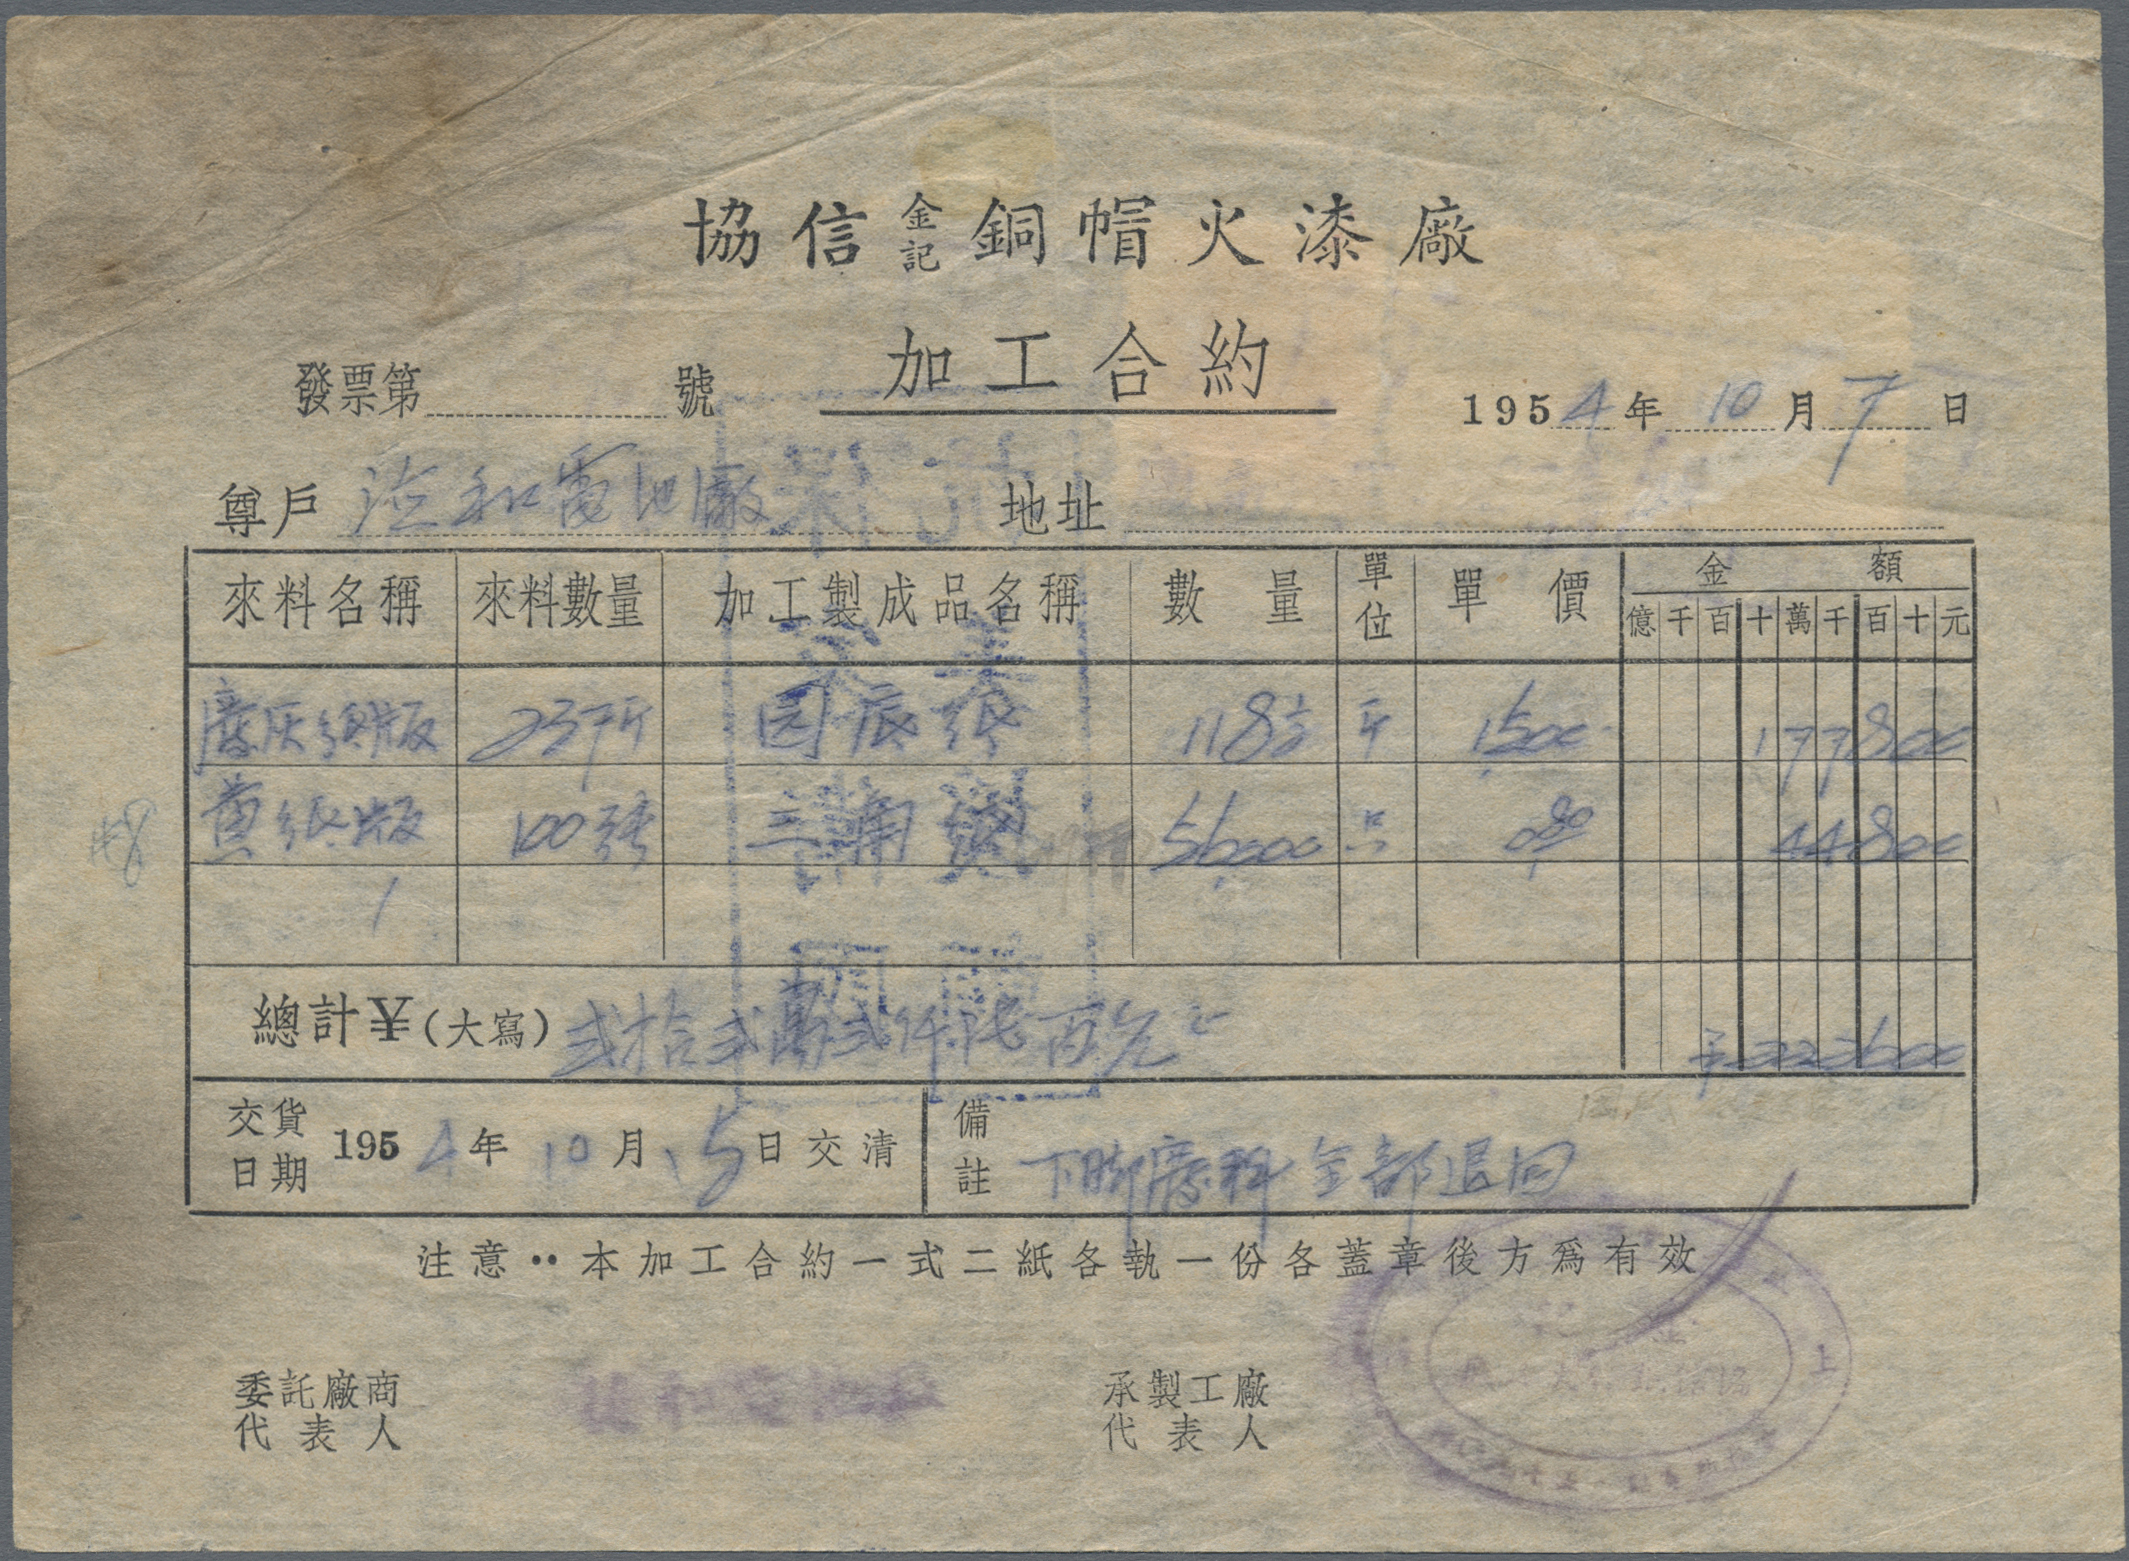 協信金記銅帽火漆廠
加工合約
發票第 號
1954年10月7日
尊戶 和電池廠 地址
來料名稱 來料數量 加工製成品名稱 數量 單位 單價 金額
億千百十萬千百十元
廢灰紙版 237斤 园底紙 118½ 斤 1,500 177800
黃紙版 100張 三調 56,000 只 0.80 44800
總計¥(大寫) 弍拾弍萬弍仟陆百元正 ¥222600
交貨日期 1954年10月15日交清 備註 下脚廢料全部退回
注意：本加工合約一式二紙各執一份各蓋章後方爲有效
委託廠商代表人 承製工廠代表人